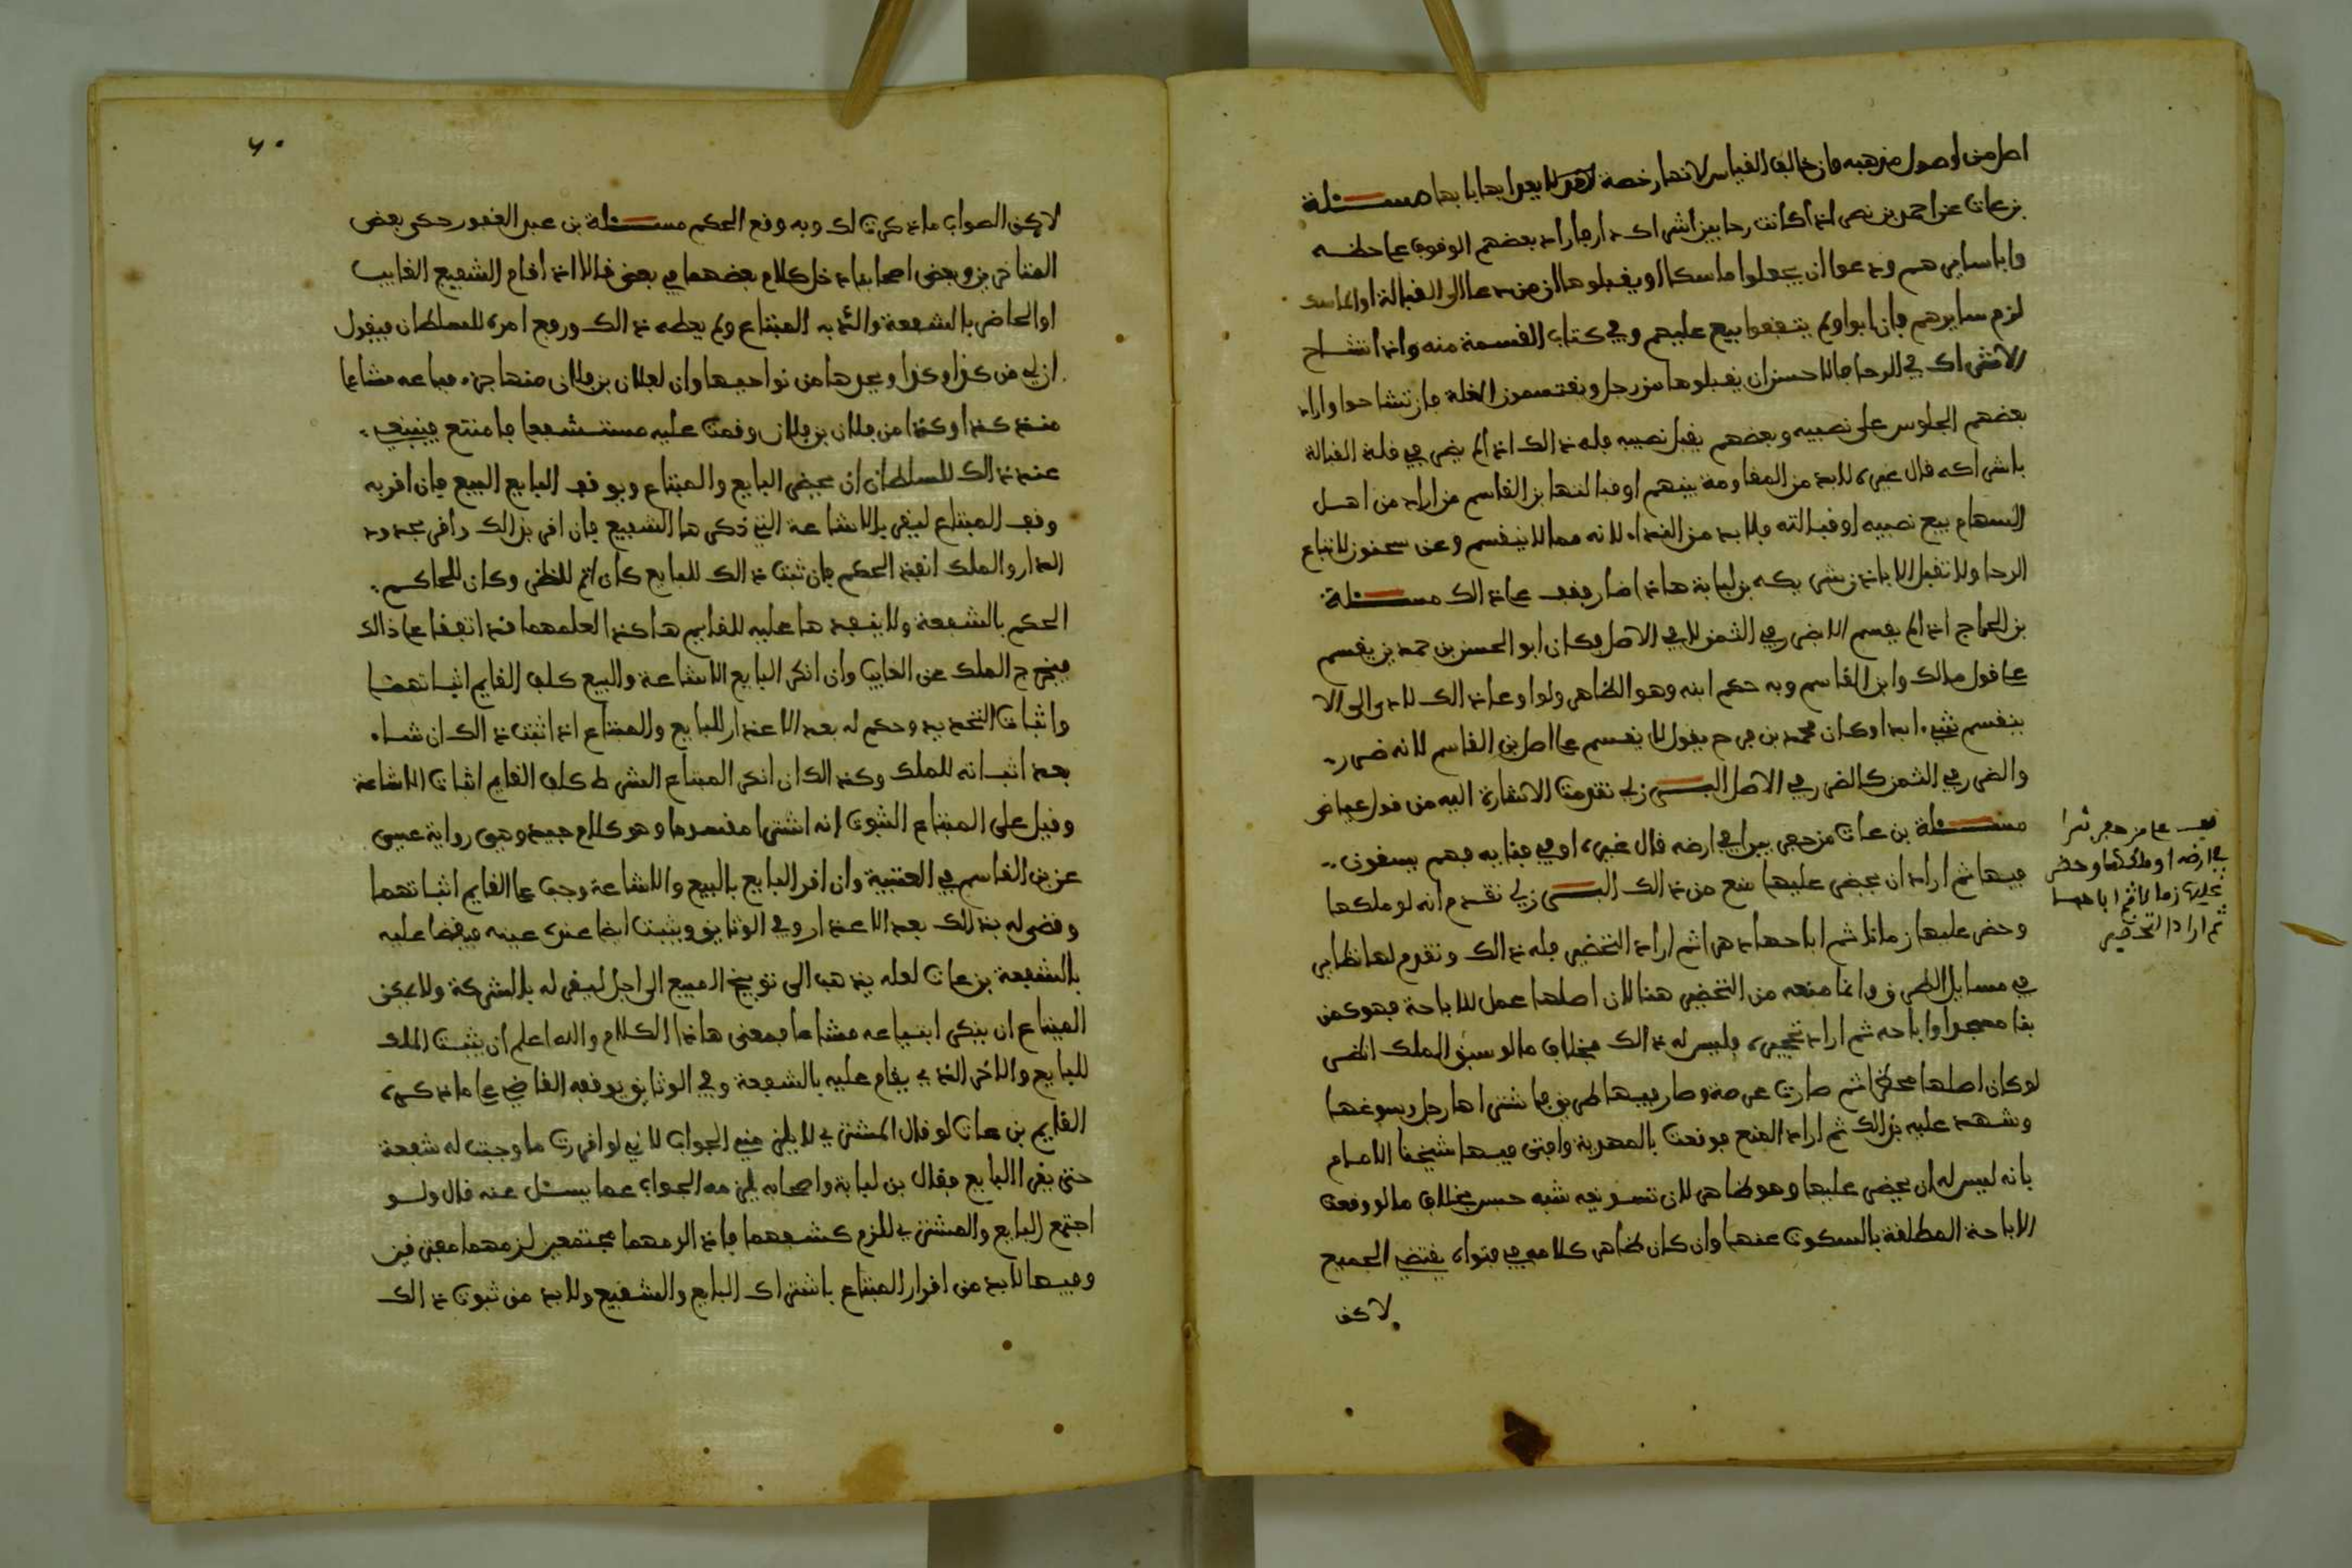 اصل من اوصول مذهبه فان خالف القياس لانها رخصة لا يعدا بها بابها مسئلة
بن عات عن احمد بن نصر اذا كانت رحا بين اشراك او دار فاراد بعضهم الوقوف على حظه
وابا سايرهم ودعوا ان يجعلوا ماسكا او يقبلوها ان من دعا الى القبالة او الماسك
لزم سايرهم فان ابوا ولم يتفقوا بيع عليهم وفي كتاب القسمة منه واذا تشاح
الاشراك في الرحا فالاحسن ان يقبلوها من رجل ويقتسمون الغلة فان تشاحوا واراد
بعضهم الجلوس على نصيبه وبعضهم يقبل نصيبه فله ذالك اذا لم يضر في قلة القبالة
باشراكه قال غيره لابد من المقاومة بينهم او قبالتها بن القاسم من اراد من اهل
السهام بيع نصيبه او قبالته فلابد من النداء لانه مما لا ينقسم وعن سحنون لاتباع
الرحا ولا تقبل الا باذن شريكه بن لبابة هاذا ضار فقف على ذالك مسئلة
بن الحاج اذا لم يقسم للضرر في الثمن لا في الاصل فكان ابو الحسن بن حمدين يقسم
على قول مالك وابن القاسم وبه حكم ابنه وهو الظاهر ولو اوعا ذالك لادى الى الا
ينقسم شيء ابدا وكان محمد بن فرج يقول لا يقسم على اصل بن القاسم لانه ضرر
والضرر في الثمن كالضرر في الاصل البرزلي تقدمت الاشارة اليه من قول عياض
مسئلة بن عات من حفر بيرا في ارضه قال غيره او في فنايه فهم يسقون
فيها ثم اراد ان يحضر عليها منع من ذالك البرزلي تقدم انه لو ملكها
وحضر عليها زمانا ثم اباحها دهرا ثم اراد التحضير فله ذالك وتقدم لها نظاير
في مسايل الطرق وانما منعه من التحضير هنا لان اصلها عمل للاباحة فهو كمن
بنا مسجدا واباحه ثم اراد تحجيره فليس له ذالك بخلاف ما لو سبق الملك انظر
لو كان اصلها محظرا ثم صارت عرصة وصار فيها طريق فاشتراها رجل وسوغها
وشهد عليه بذالك ثم اراد المنع فوقعت بالمهدية وافتى فيها شيخنا الامام
بانه ليس له ان يحضر عليها وهو ظاهر لان تسويغه شبه حبس بخلاف ما لو وقعت
الاباحة المطلقة بالسكوت عنها وان كان ظاهر كلامه في فتواه يقتضي الجميع
لاكن
قف على من حفر بئرا
في ارضه او ملكها وحضر
عليها زمانا ثم اباحها
ثم اراد التحضير
٦٠
لاكن الصواب ما ذكرت لك وبه وقع الحكم مسئلة بن عبد الغفور حكى بعض
المتاخرين وبعض اصحابنا دخل كلام بعضهما في بعض قالا اذا قام الشفيع الغايب
او الحاضر بالشفعة والذبه المبتاع ولم يعطه ذالك ورفع امره للسلطان فيقول
ان لي من كذا وكذا ويحدها من نواحيها وان لفلان بن فلان منها جزء فباعه مشاعا
منذ كذا وكذا من فلان بن فلان وقمت عليه مستشفعا فامتنع فينبغي
عند ذالك للسلطان ان يحضر البايع والمبتاع ويوقف البايع البيع فان اقر به
وقف المبتاع ليقر بالاشاعة التي ذكرها الشفيع فان اقر بذالك واقر بحدود
الدار والملك انفذ الحكم فان ثبت ذالك للبايع كان اتم للنظر وكان للحاكم
الحكم بالشفعة ولا ينفذها عليه للقايم هاكذا لعلهما قد اتفقا على ذالك
فيخرج الملك عن الغايب وان انكر البايع الاشاعة والبيع كلف القايم اثباتهما
واثبات التحديد وحكم له بعد الاعذار للبايع والمبتاع اذا اثبت ذالك ان شاء
بعد اثباته للملك وكذالك ان انكر المبتاع الشرط كلف القايم اثبات الاشاعة
وقيل على المبتاع الثبوت انه اشترا مقسوما وهو كلام جيد وهي رواية عيسى
عن بن القاسم في العتبية وان اقر البايع بالبيع والاشاعة وجب على القايم اثباتهما
وقضى له بذلك بعد الاعذار وفي الوثايق ويثبت ايضا عنده عينه فيقضا عليه
بالشفعة بن عات لعله يذهب الى توبيخ المبيع الى اجل ليقر له بالشركة ولا يمكن
المبتاع ان ينكر ابتياعه مشاعا فمعنى هاذا الكلام والله اعلم ان يثبت الملك
للبايع والاخر الذي يقام عليه بالشفعة وفي الوثايق يوقفه القاضي على ما ذكره
القايم بن عات لو قال المشتري لا يلزمني الجواب لاني لو اقررت ما وجبت له شفعة
حتى يقر البايع فقال بن لبابة واصحابه يلزمه الجواب عما يسئل عنه قال ولو
اجتمع البايع والمشتري للزم كشفهما فاذا الزمهما مجتمعين لزمهما مفترقين
وفيها لابد من اقرار المبتاع باشتراك البايع والشفيع ولابد من ثبوت ذالك